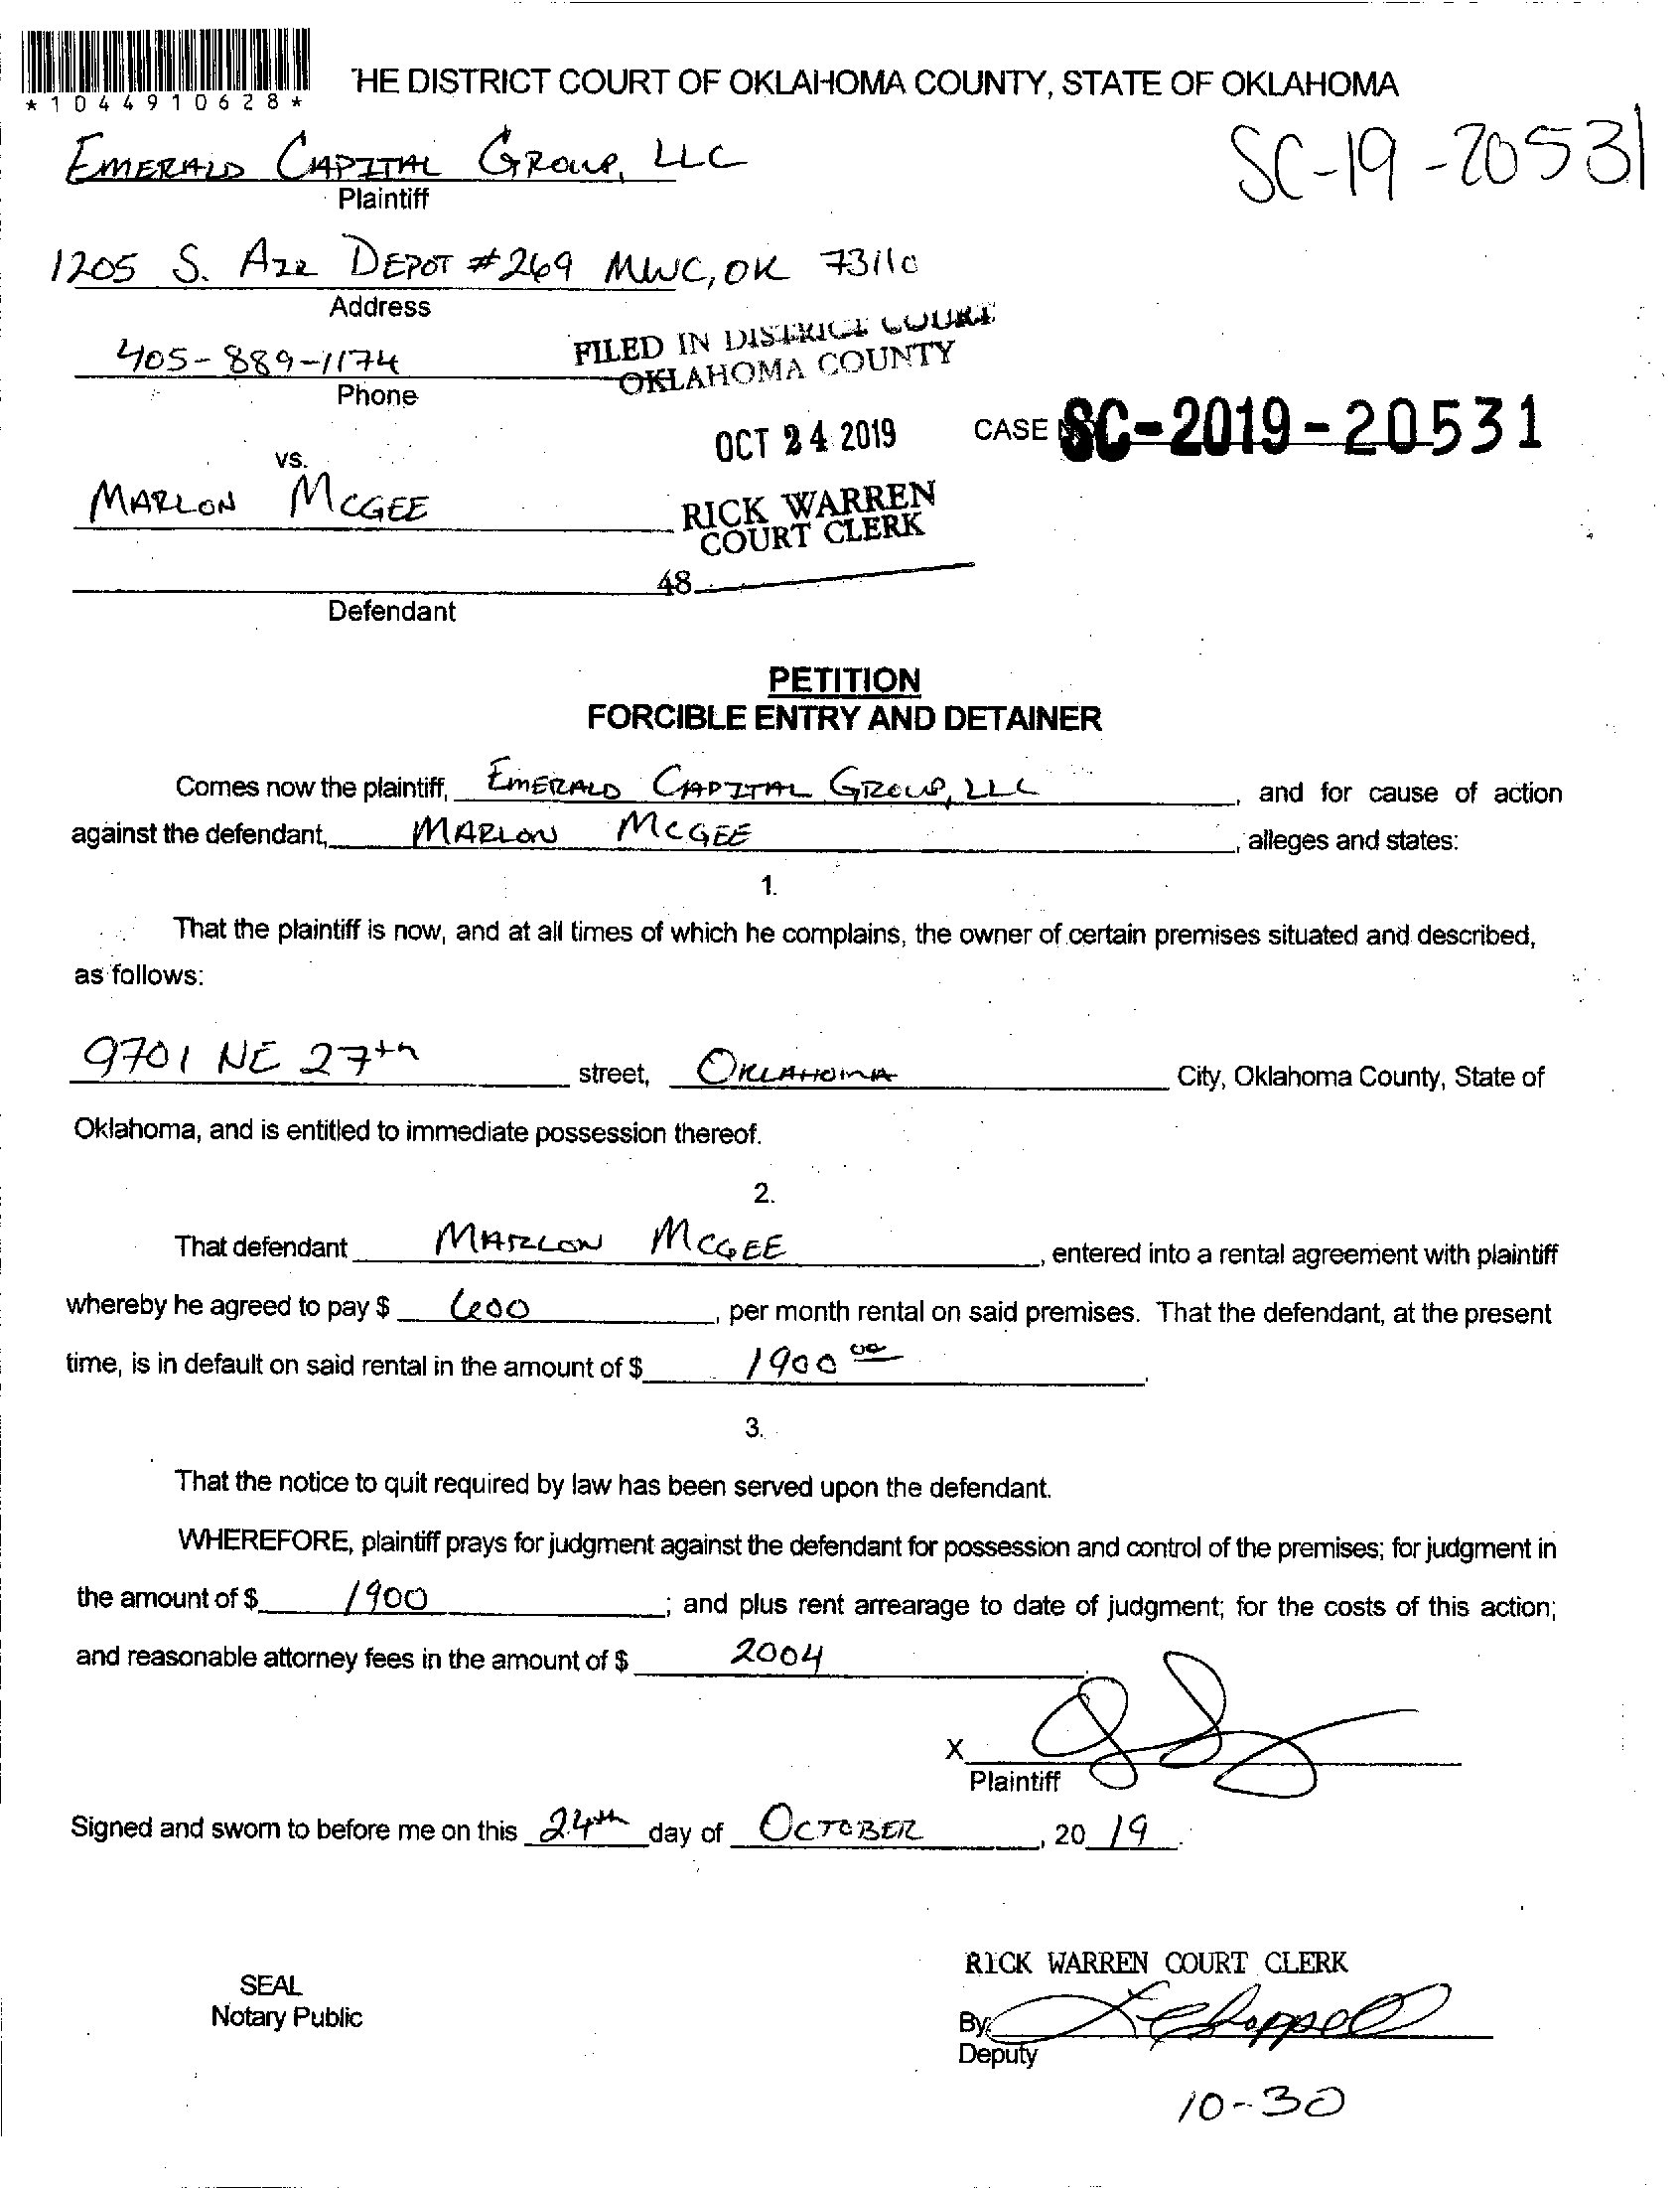 *1044910628*
HE DISTRICT COURT OF OKLAHOMA COUNTY, STATE OF OKLAHOMA
SC-19-20531
EMERALD CAPITAL GROUP, LLC
Plaintiff
1205 S. AIR DEPOT #269 MWC, OK 73110
Address
FILED IN DISTRICT COURT
OKLAHOMA COUNTY
405-889-1174
Phone
OCT 24 2019
CASE SC-2019-20531
vs.
MARLON MCGEE
RICK WARREN
COURT CLERK
48
Defendant
PETITION
FORCIBLE ENTRY AND DETAINER
Comes now the plaintiff, EMERALD CAPITAL GROUP, LLC, and for cause of action
against the defendant, MARLON MCGEE, alleges and states:
1.
That the plaintiff is now, and at all times of which he complains, the owner of certain premises situated and described,
as follows:
9701 NE 27th street, OKLAHOMA City, Oklahoma County, State of
Oklahoma, and is entitled to immediate possession thereof.
2.
That defendant MARLON MCGEE, entered into a rental agreement with plaintiff
whereby he agreed to pay $ 600, per month rental on said premises. That the defendant, at the present
time, is in default on said rental in the amount of $ 1900 00.
3.
That the notice to quit required by law has been served upon the defendant.
WHEREFORE, plaintiff prays for judgment against the defendant for possession and control of the premises; for judgment in
the amount of $ 1900; and plus rent arrearage to date of judgment; for the costs of this action;
and reasonable attorney fees in the amount of $ 2004.
X
Plaintiff
Signed and sworn to before me on this 24th day of OCTOBER, 20 19.
RICK WARREN COURT CLERK
SEAL
Notary Public
By:
Deputy
10-30